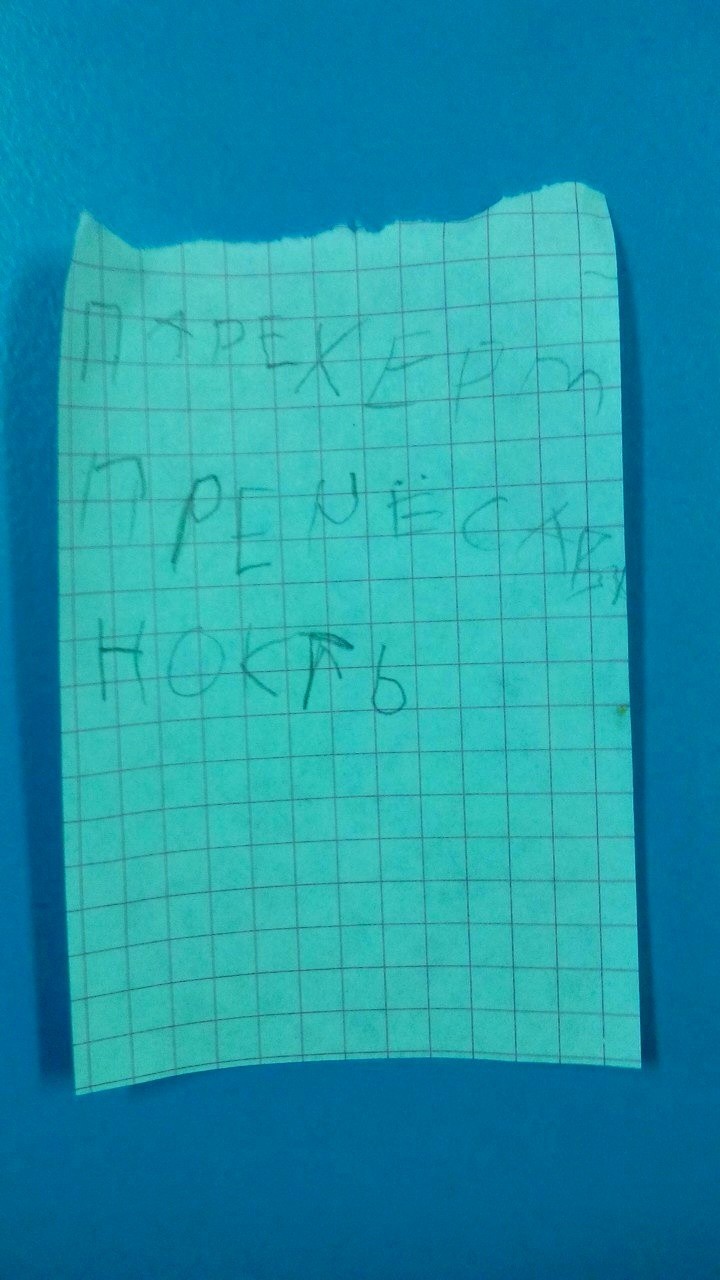 ПАРЕХЕРТ
ПРЕИЁСАВЫ
НОКТЬ